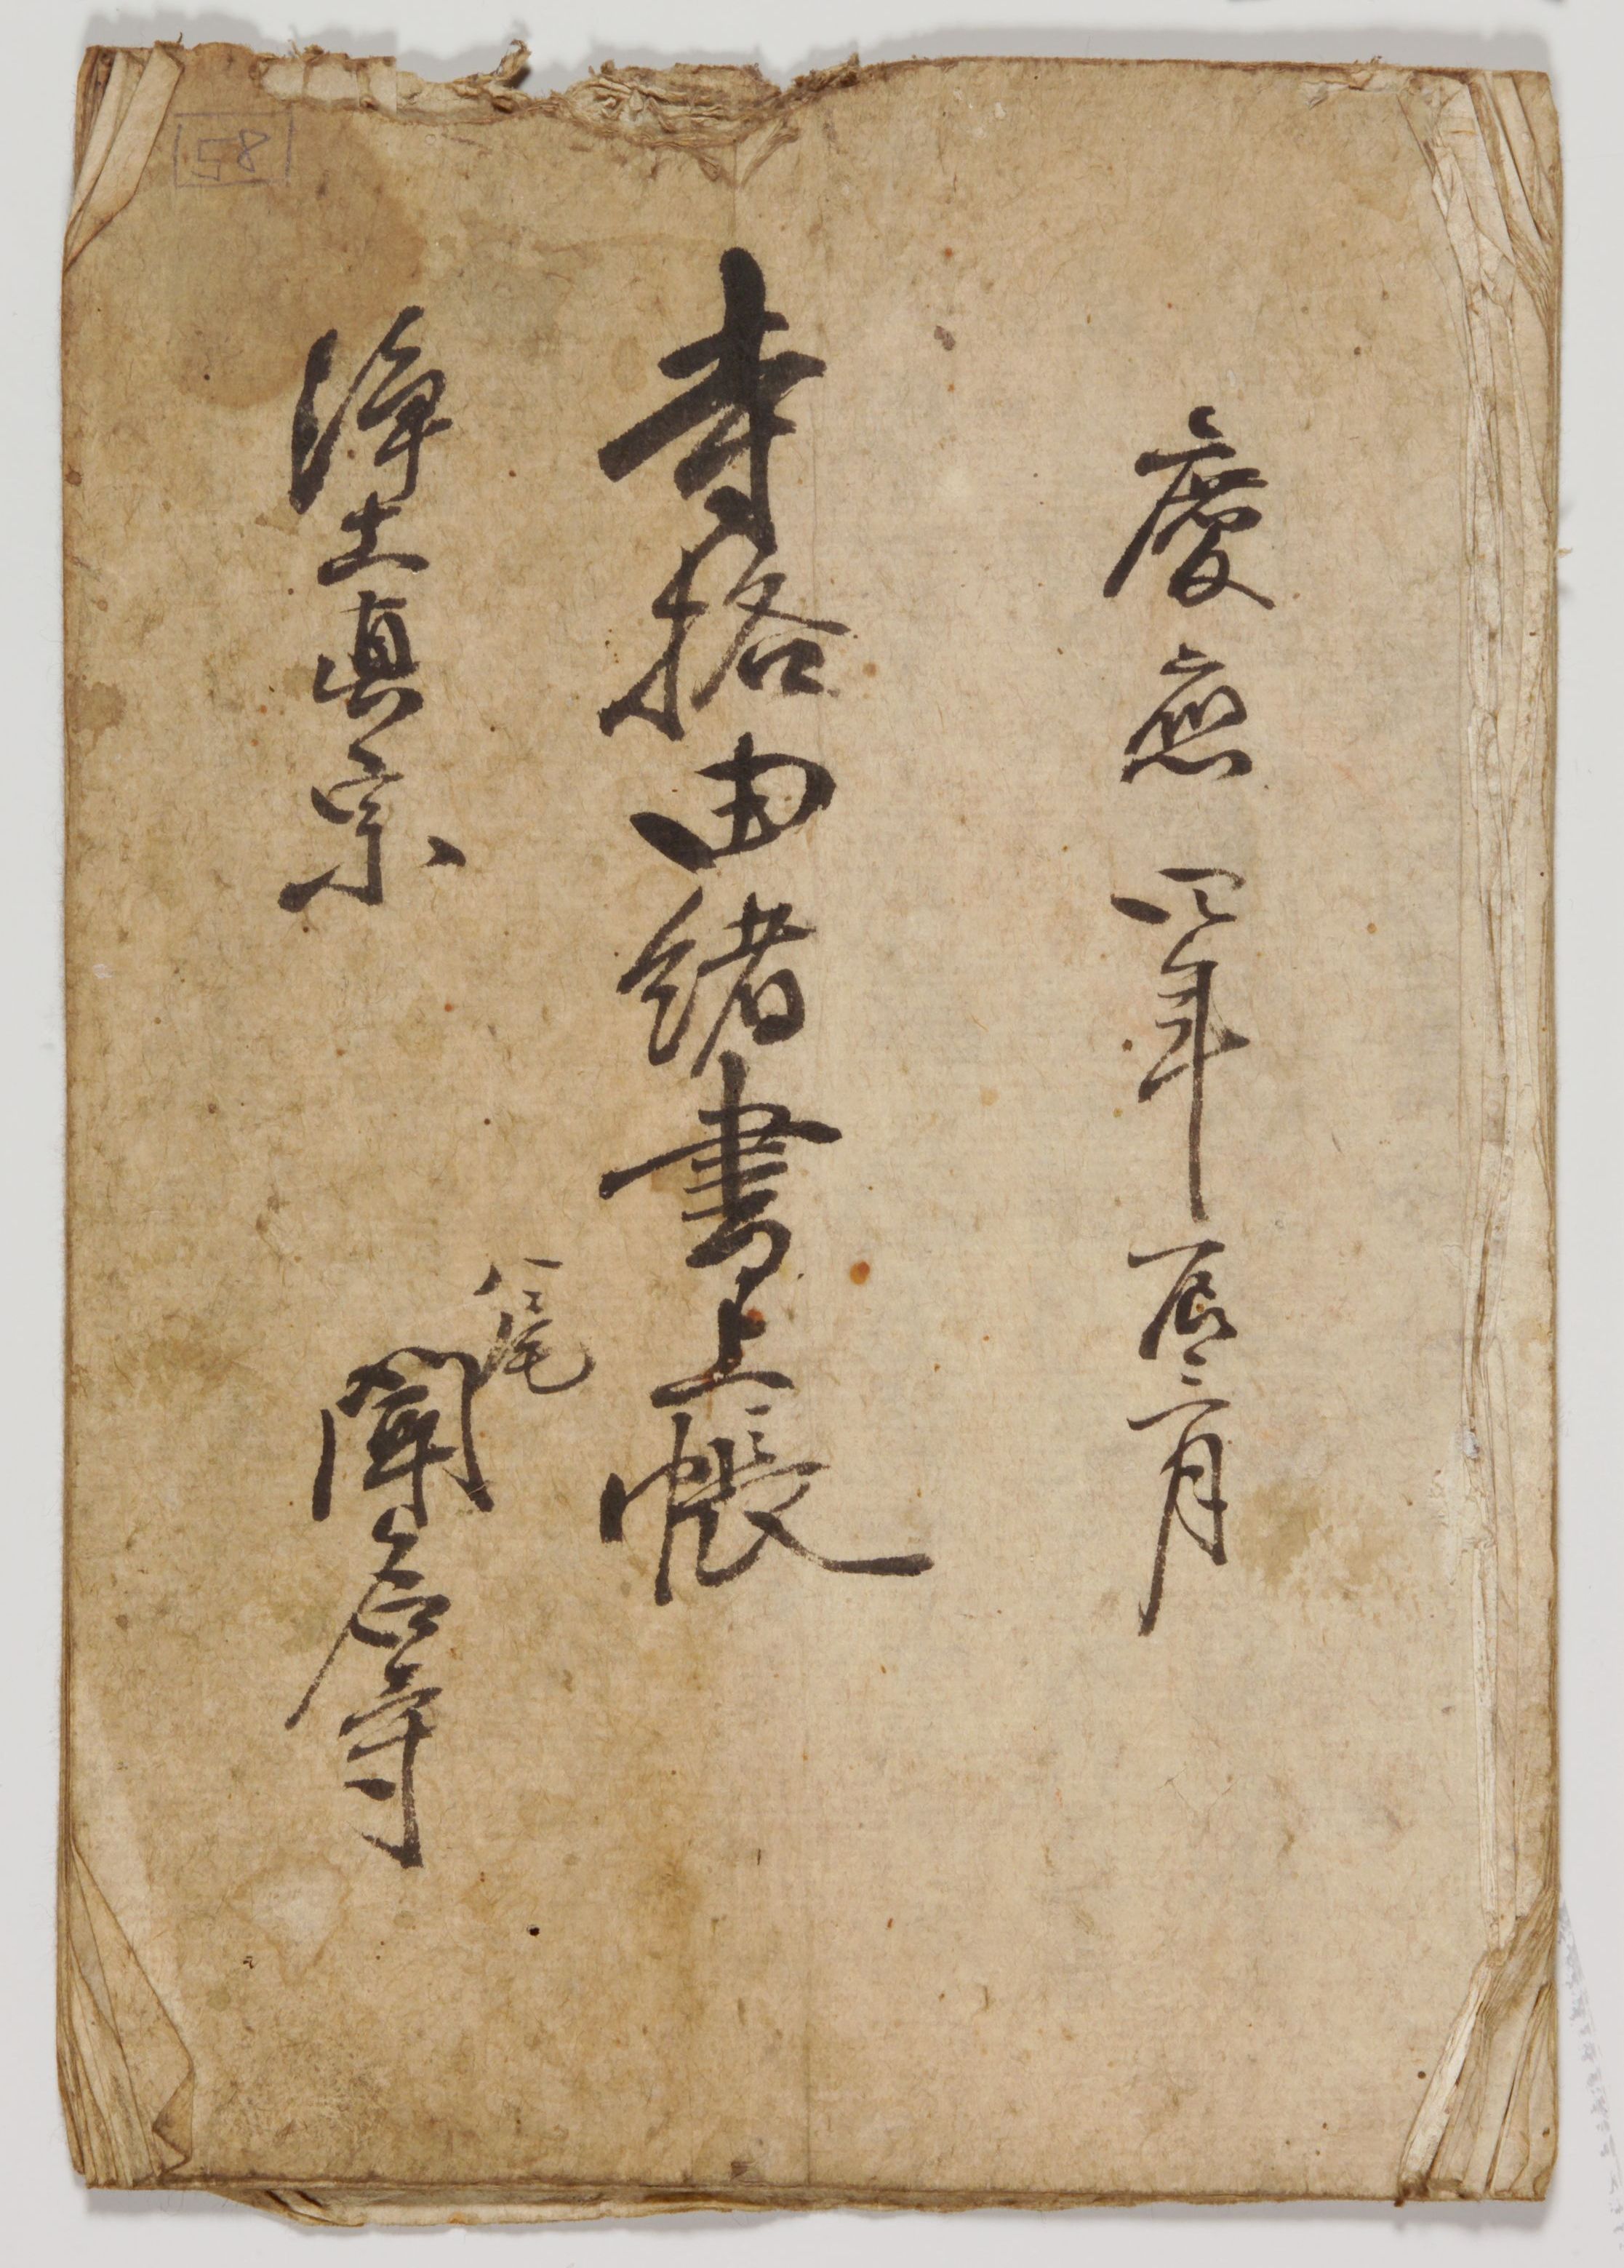 慶應四年辰三月
寺格由緒書上帳
浄土真宗
八尾
聞名寺
58